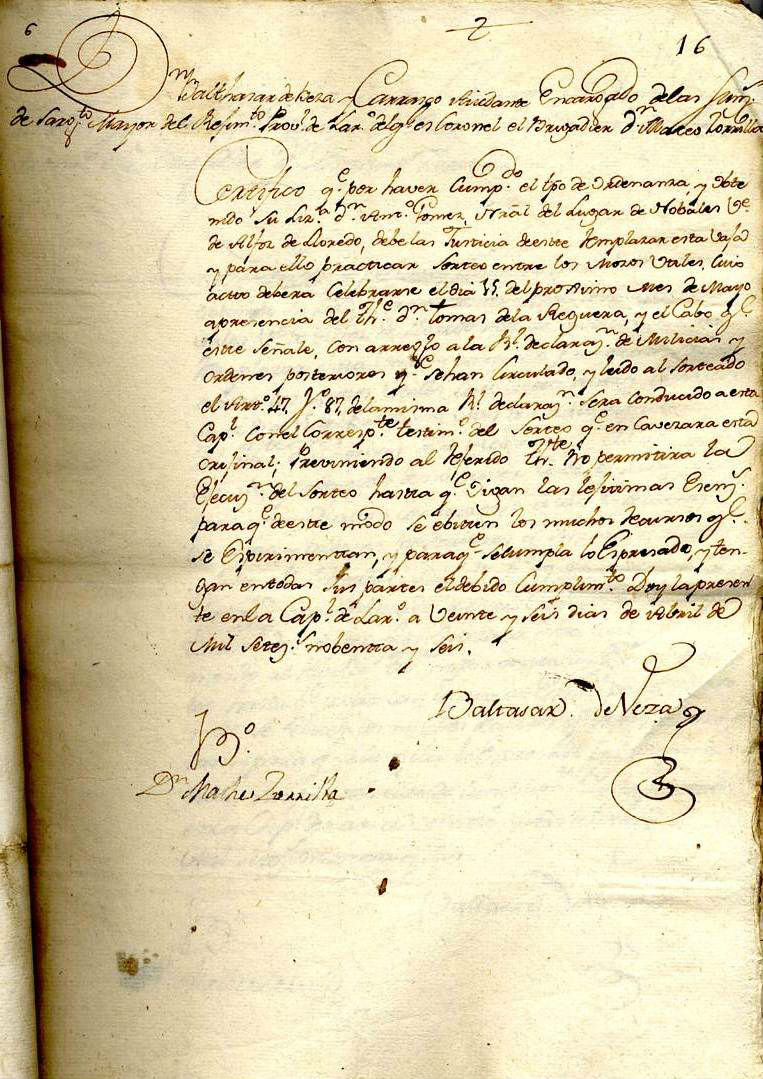 6
2
16
Dn Balthasar de Veza y Carrasco Aiudante Encargado de las funs.
de Sargto Mayor del Regimto Provl. de Laro. del qe es Coronel el Brigadier dn Mateo Zorrilla
Certifico qe por haver Cumpdo. el tpo de Ordenanza, y obte
nido su Lizª dn Anto. Gomez, Nrâl del Lugar de Nobales Ve.
de Alfoz de Lloredo, debe las Justicia de este Remplazar esta Vaja
y para ello practicar Sorteo entre los Mozos Utiles, Cuio
acto debera Celebrarse el dia 15. del proximo Mes de Mayo
a presencia del The. dn Tomas de la Reguera, y el Cabo qe.
este Señale, Con arreglo a la Rl. declarazn. de Milicias y
ordenes posteriores qe se han Circulado, y leido al Sorteado
el Arto. 47. fo. 87. de la misma Rl declarazn. Sera Conducido a esta
Capl. Con el Correspte testimo. del Sorteo qe en Cavezara esta
Orijinal; Previniendo al Referido Thte. No permitira la
Ejecuzn. del Sorteo hasta qe oigan las lejitimas Esenzs.
para qe de este modo se ebiten los muchos Recursos qe.
se Espirimentan, y para qe se Cumpla lo Espresado, y ten-
gan en todas sus partes el debido Cumplimto. Doy la presen
te en la Capl. de Laro. a Veinte y Seis dias de Abril de
Mil Setezs. nobenta y Seis.
Baltasar de Veza y
Vo. Bo.
Dn Matheo Zorrilla